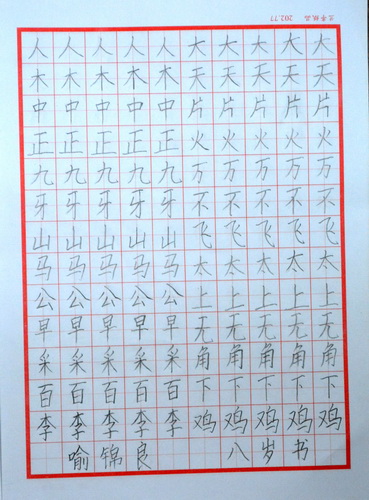 人人人人人大大大大大
木木木木木天天天天天
中中中中中片片片片片
正正正正正火火火火火
九九九九九万万万万万
牙牙牙牙牙不不不不不
山山山山山飞飞飞飞飞
马马马马马太太太太太
公公公公公上上上上上
早早早早早无无无无无
采采采采采角角角角角
百百百百百下下下下下
李李李李李鸡鸡鸡鸡鸡
喻锦良 八岁书